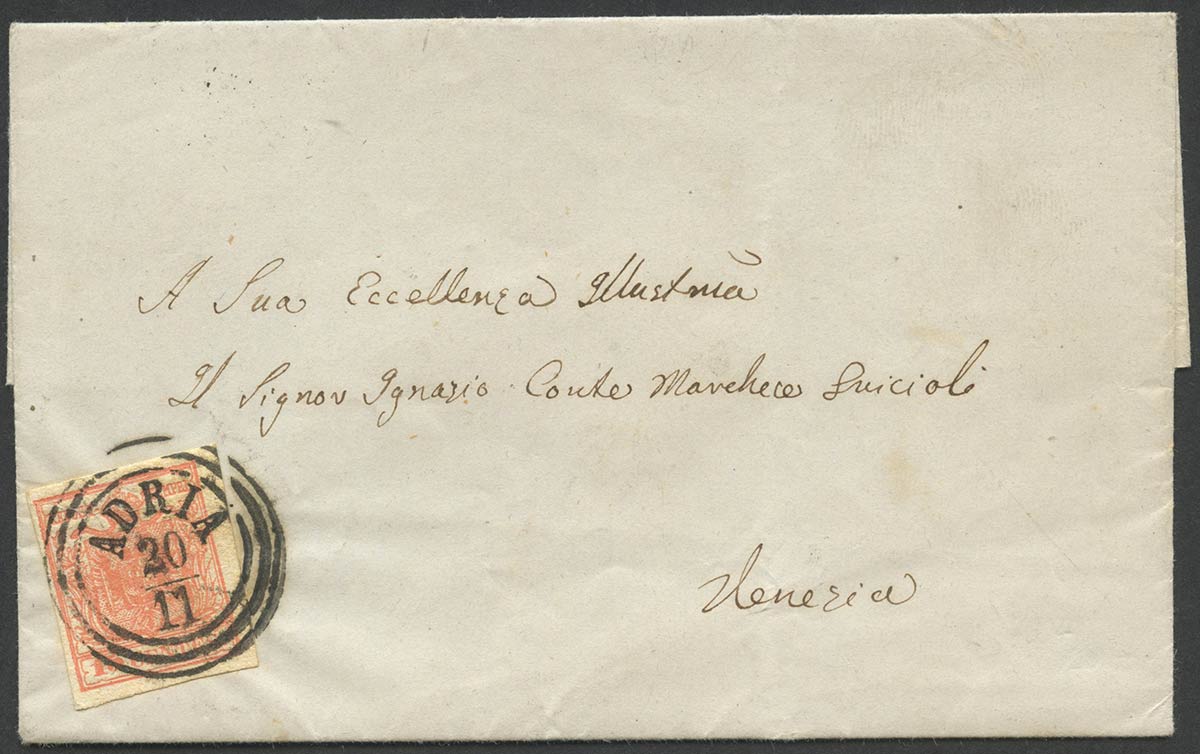 A Sua Eccellenza Illustmã
Il Signor Ignazio Conte Marchese Guicioli
Venezia
ADRIA
20
11